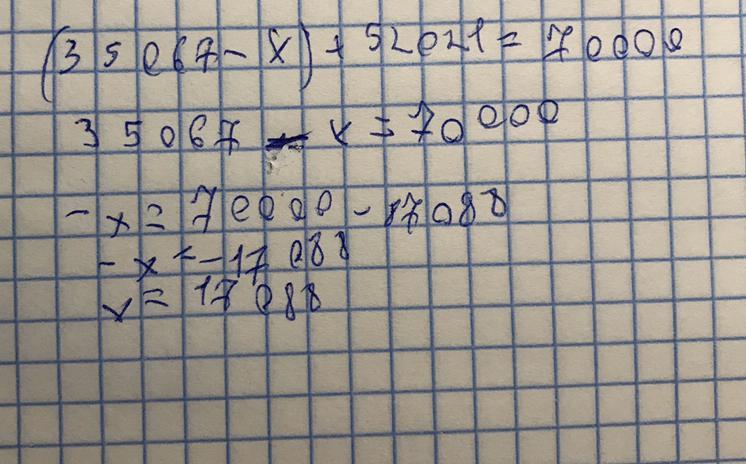 (35067-x)+52021=70000
35067-x=70000
-x=70000-87088
-x=-17088
x=17088